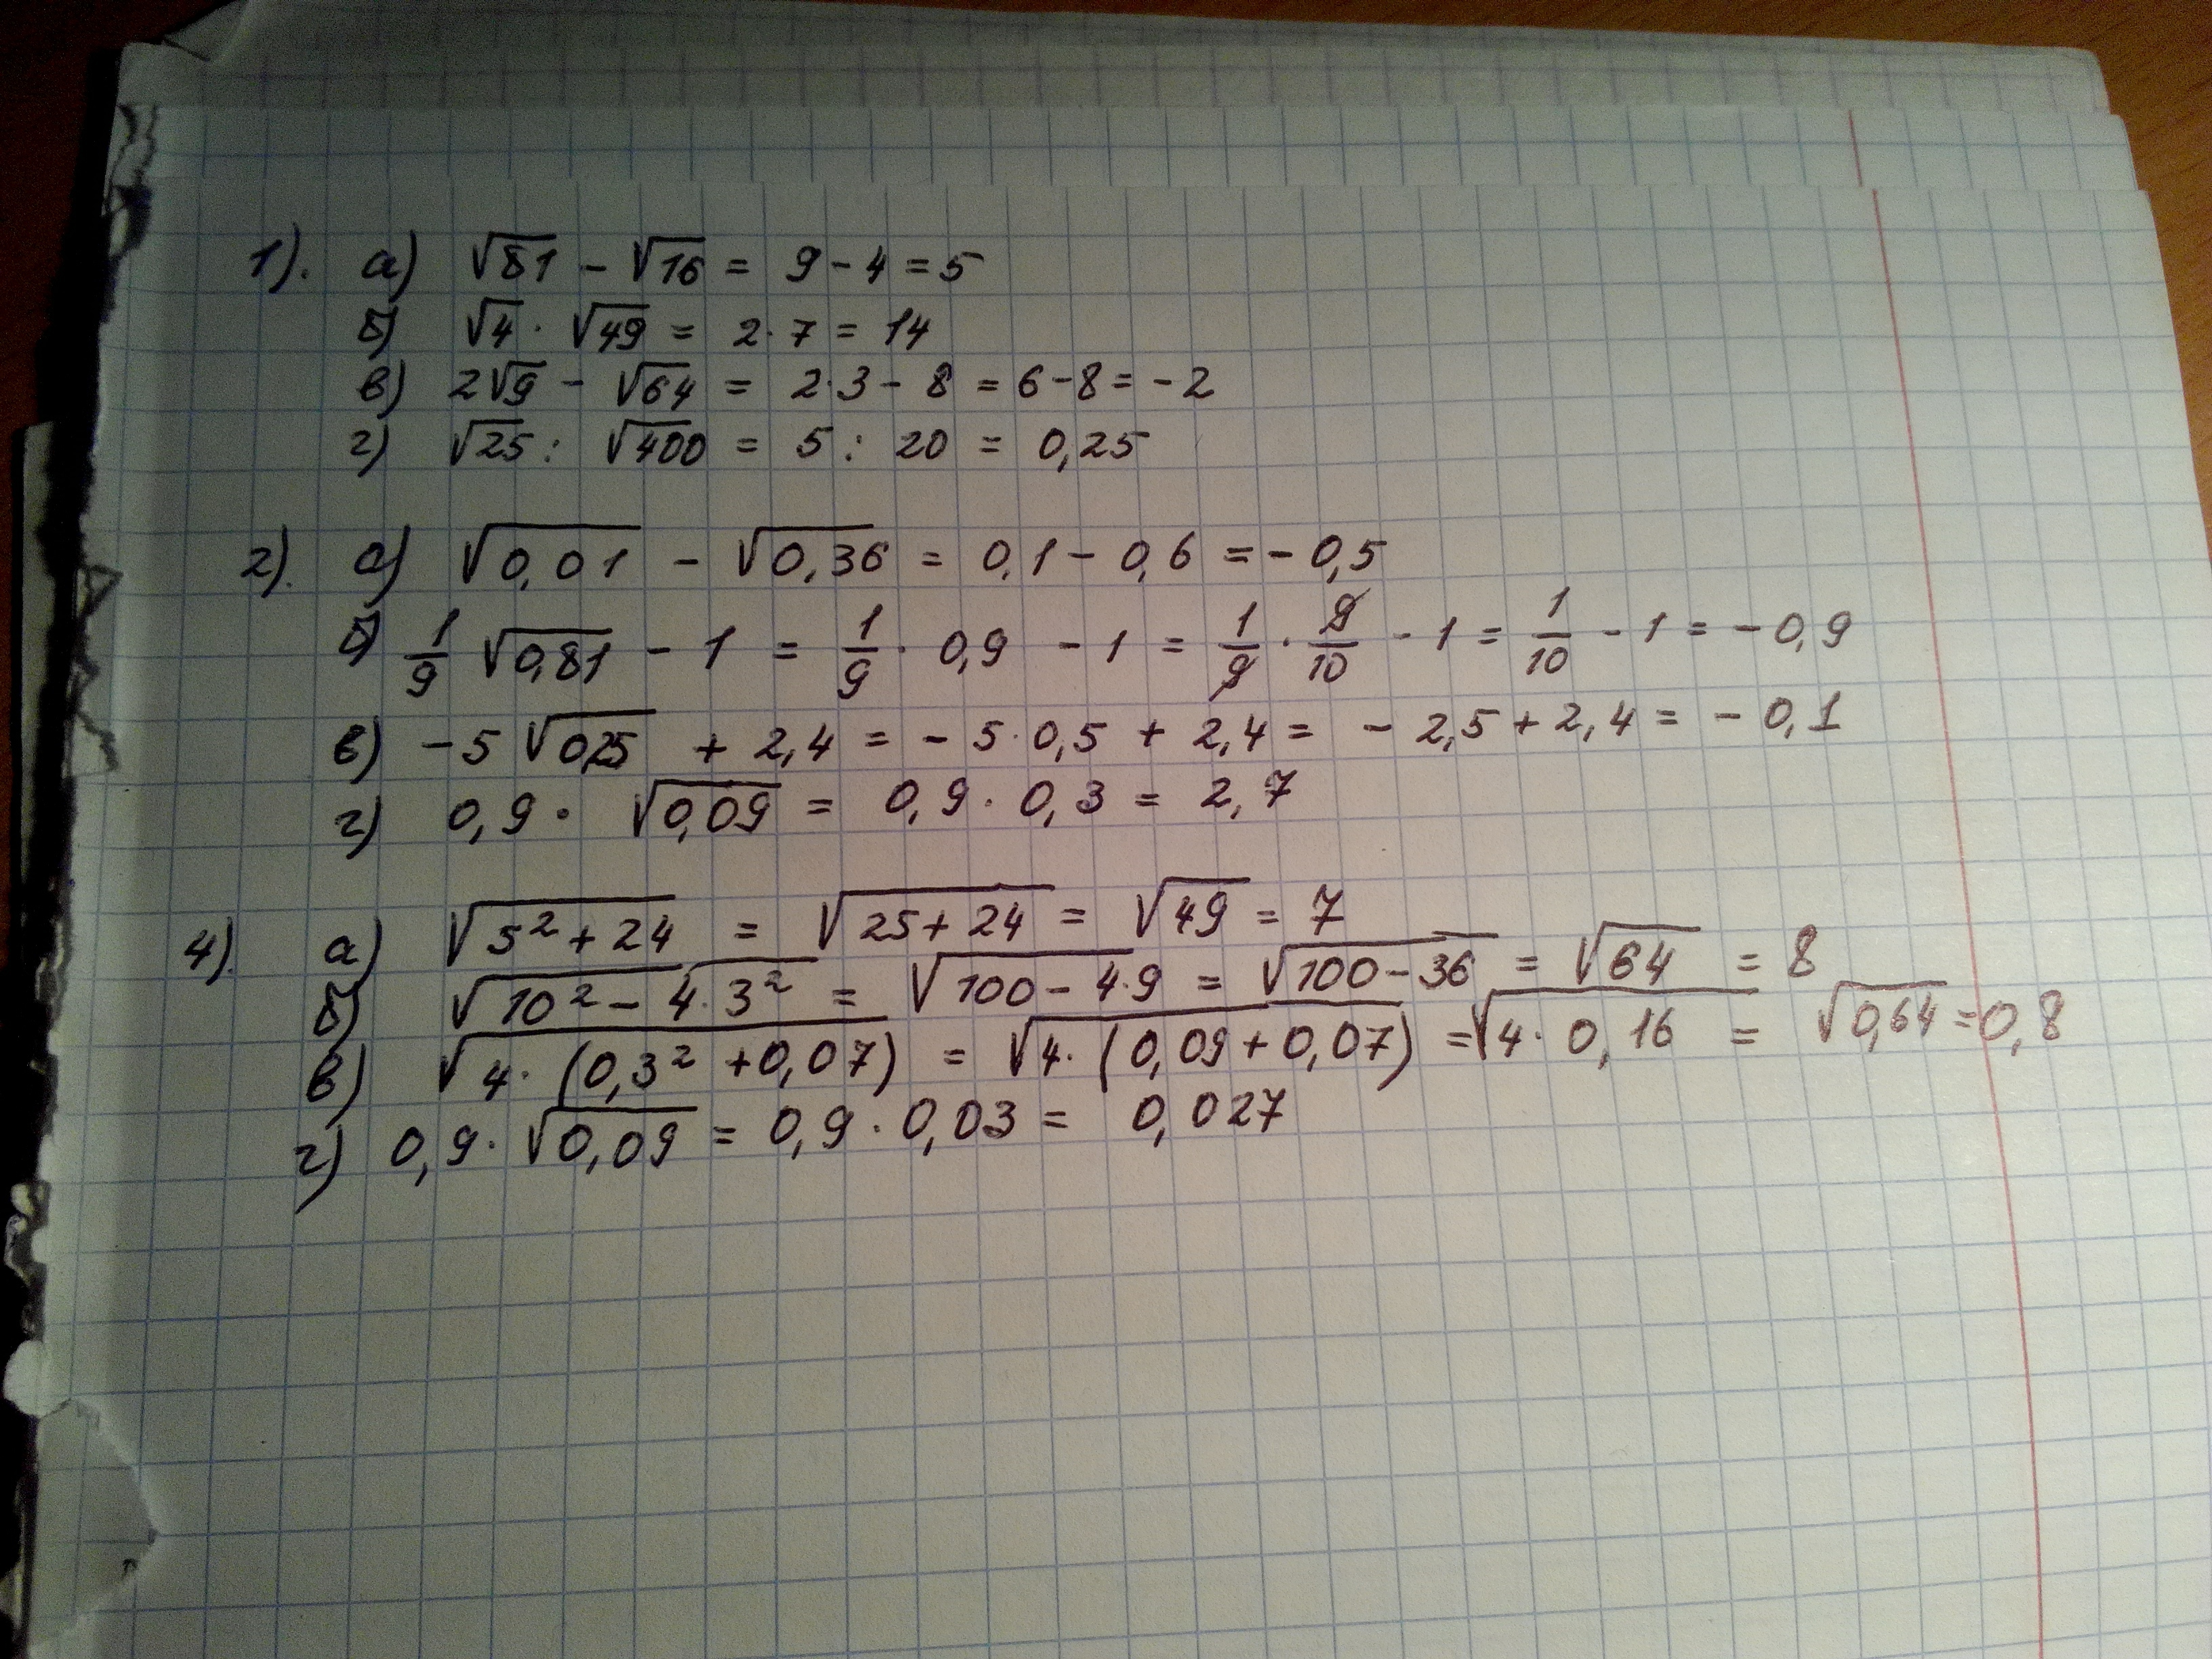 1). а) √81 - √16 = 9 - 4 = 5
б) √4 · √49 = 2 · 7 = 14
в) 2√9 - √64 = 2·3 - 8 = 6 - 8 = - 2
г) √25 : √400 = 5 : 20 = 0,25
2). а) √0,01 - √0,36 = 0,1 - 0,6 = - 0,5
б) 1/9 √0,81 - 1 = 1/9 · 0,9 - 1 = 1/9 · 9/10 - 1 = 1/10 - 1 = - 0,9
в) - 5 √0,25 + 2,4 = - 5 · 0,5 + 2,4 = - 2,5 + 2,4 = - 0,1
г) 0,9 · √0,09 = 0,9 · 0,3 = 2,7
4). а) √(5² + 24) = √(25 + 24) = √49 = 7
б) √(10² - 4·3²) = √(100 - 4·9) = √(100 - 36) = √64 = 8
в) √(4 · (0,3² + 0,07)) = √(4 · (0,09 + 0,07)) = √(4 · 0,16) = √0,64 = 0,8
г) 0,9 · √0,09 = 0,9 · 0,03 = 0,027